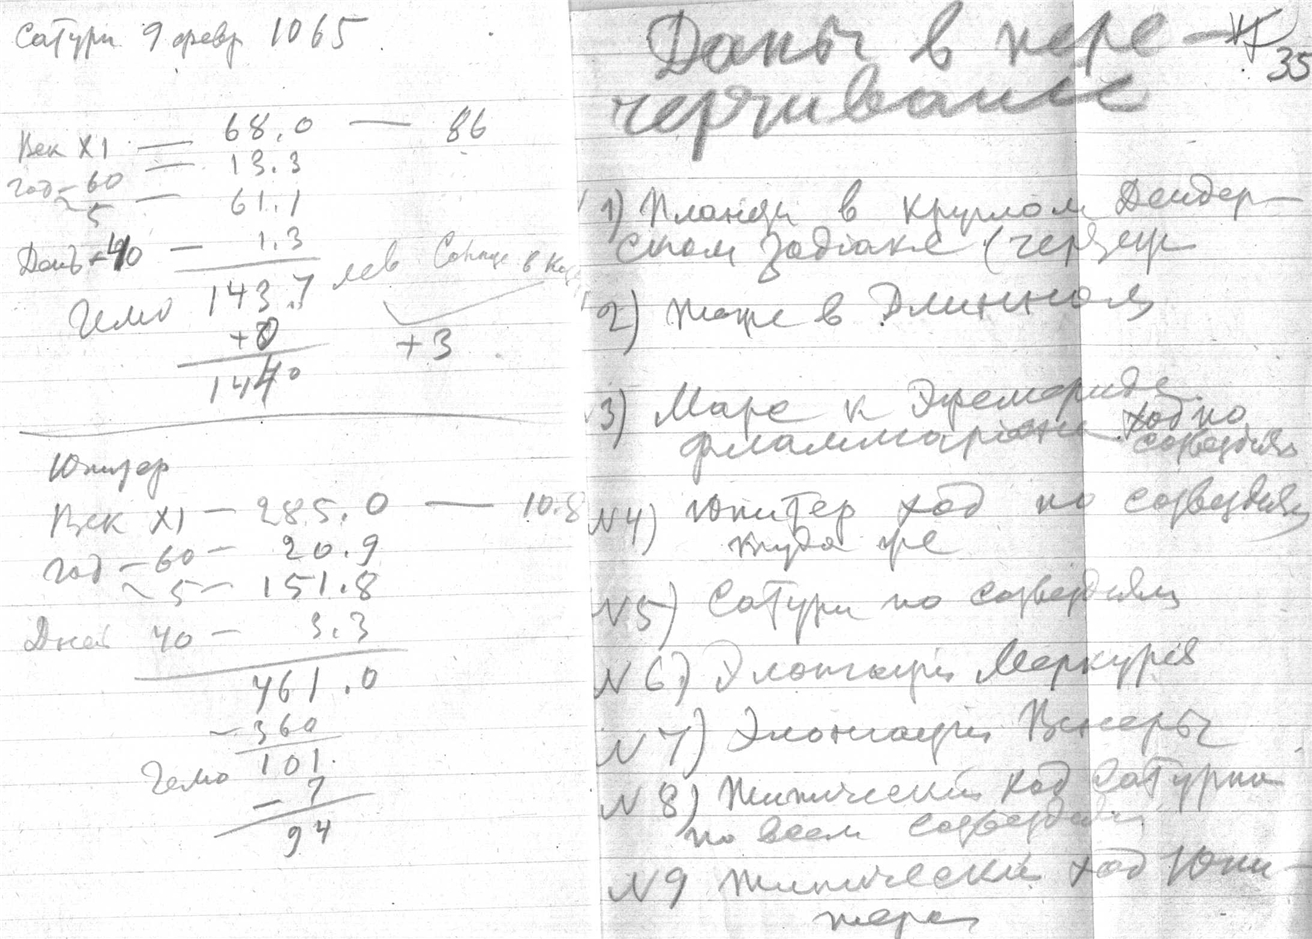 Сатурн 9 февр 1065
Век XI — 68.0 — 86
год – 60 — 13.3
~ 5 — 61.1
Дней – 40 — 1.3
Гелио 143.7 лев Солнце в
+0 +3
144.0
Юпитер
Век XI — 285.0 — 10.8
год – 60 — 20.9
~ 5 — 151.8
Дней 40 — 3.3
461.0
– 360
101.
Гелио
– 7
94
Даны в пере-
черчивание
35
1) Планеты в круглом Дендер-
ском Зодіаке (
2) Тоже в Длинном
3) Марс к Эфемериде
Фламмаріона ход по
созвездіям
N4) Юпитер ход по созвездіям
туда же
N5) Сатурн по созвездіям
N6) Элонгаціи Меркурія
N7) Элонгаціи Венеры
N8) Типическій ход Сатурна
по всем созвездіям
N9 Типическій ход Юпи-
тера